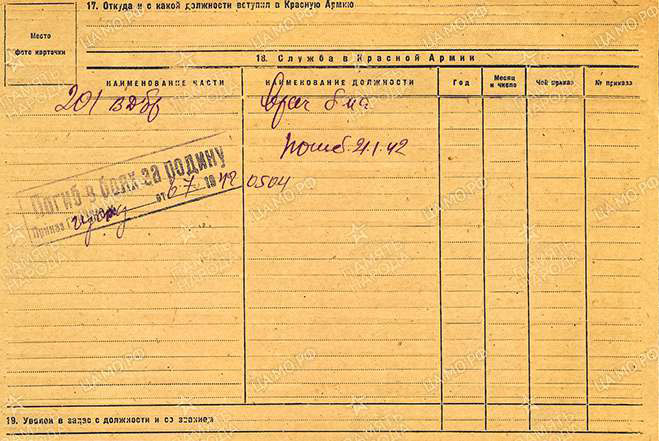 17. Откуда и с какой должности вступил в Красную Армию
Место
фото карточки
18. Служба в Красной Армии
НАИМЕНОВАНИЕ ЧАСТИ
НАИМЕНОВАНИЕ ДОЛЖНОСТИ
Год
Месяц и число
Чей приказ
№ приказа
201 вдбр
Врач б-на
погиб. 21.1.42
Погиб в боях за родину
Приказ Г
от 07 1942 0504
19. Уволен в запас с должности и со званием
ЦАМО.РФ
ПАМЯТЬ НАРОДА